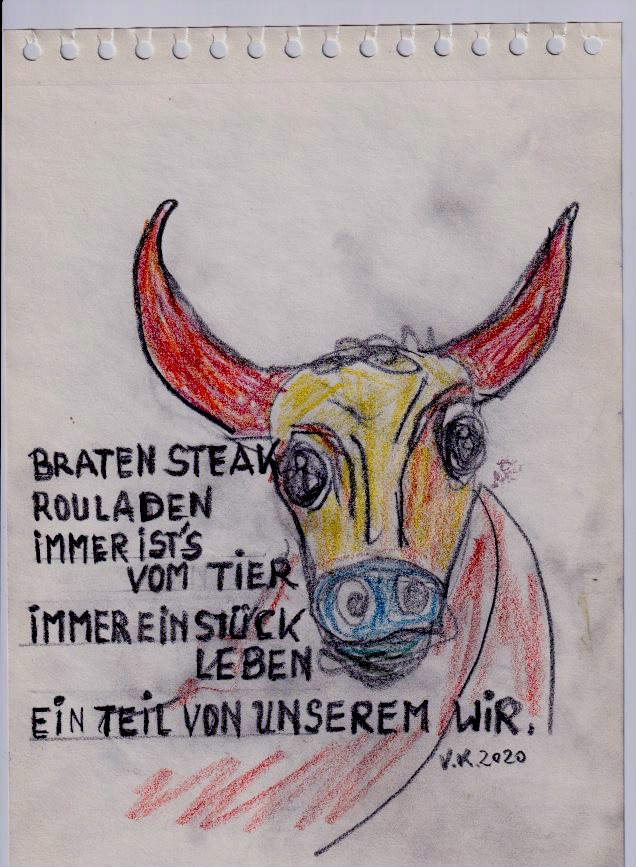 BRATEN STEAK
ROULADEN
iMMER iST'S
VOM TiER
iMMER EiN STÜCK
LEBEN
EiN TEiL VON UNSEREM WiR.
V.K. 2020